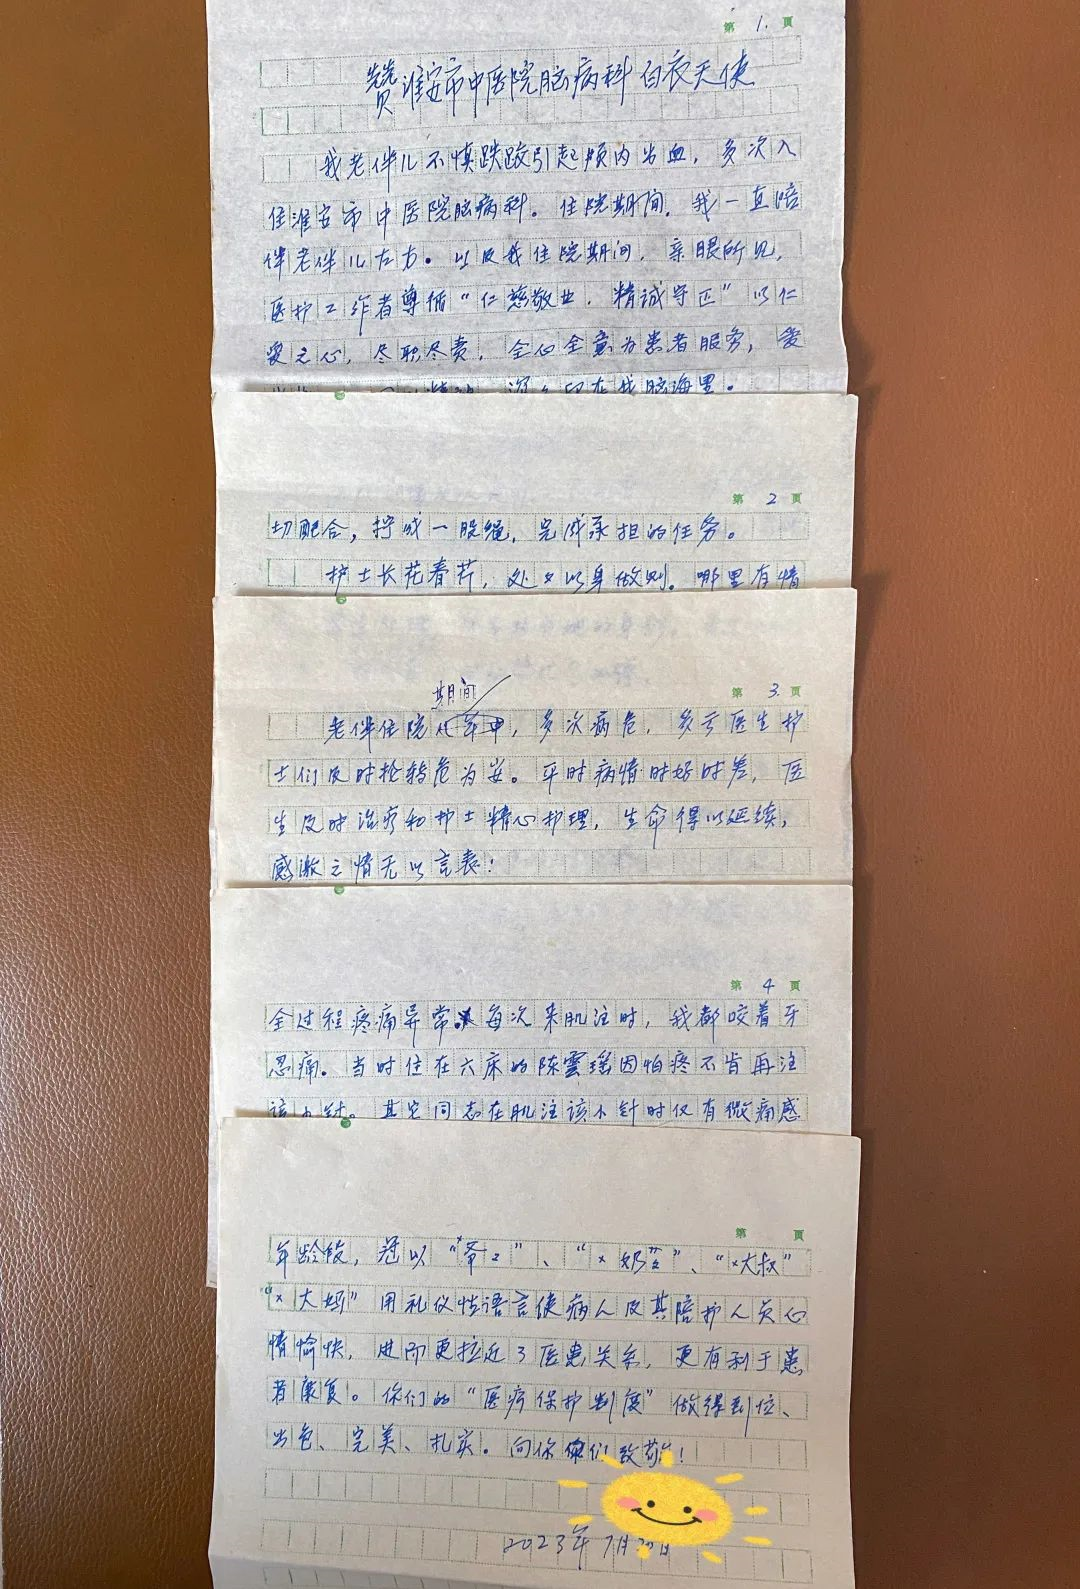 第 1. 页
赞淮安市中医院脑病科白衣天使
我老伴儿不慎跌跤引起颅内出血，多次入
住淮安市中医院脑病科。住院期间，我一直陪
伴老伴儿左右。以及我住院期间，亲眼所见，
医护工作者尊循“仁慈敬业，精诚守正”以仁
爱之心，尽职尽责，全心全意为患者服务，爱
深深印在我脑海里。
第 2 页
切配合，拧成一股绳，完成承担的任务。
护士长花春芹，处处以身做则。哪里有情
第 3. 页
期间
老伴住院，多次病危，多亏医生护
士们及时抢转危为安。平时病情时好时差，医
生及时治疗和护士精心护理，生命得以延续，
感激之情无以言表！
第 4 页
全过程疼痛异常。每次来肌注时，我都咬着牙
忍痛。当时住在六床的陈雲瑶因怕疼不肯再注
该小针。其它同志在肌注该小针时仅有微痛感
第 页
年龄段，冠以“×爷々”、“×奶々”、“×大叔”
“×大妈”用礼仪性语言使病人及其陪护人员心
情愉快，进而更拉近了医患关系，更有利于患
者康复。你们的“医疗保护制度”做得到位、
出色、完美、扎实。向你们致敬！
2023年7月20日